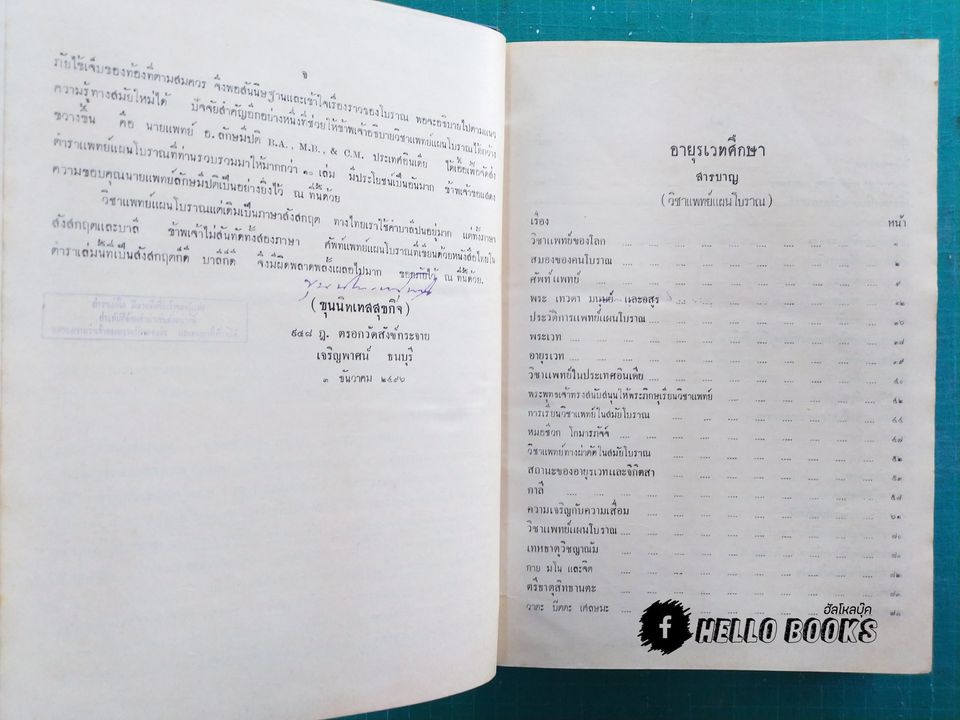 จ
ภัยไข้เจ็บของท้องที่ตามสมควร จึ่งพอสันนิษฐานและเข้าใจเรื่องราวของโบราณ พอจะอธิบายไปตามแนว
ความรู้ทางสมัยใหม่ได้ ปัจจัยสำคัญอีกอย่างหนึ่งที่ช่วยให้ข้าพเจ้าอธิบายวิชาแพทย์แผนโบราณได้กว้าง
ขวางขึ้น คือ นายแพทย์ อ. ลักษมีปติ B.A., M.B., & C.M. ประเทศอินเดีย ได้เอื้อเฟื้อจัดส่ง
ตำราแพทย์แผนโบราณที่ท่านรวบรวมมาให้มากกว่า ๑๐ เล่ม มีประโยชน์เป็นอันมาก ข้าพเจ้าขอแสดง
ความขอบคุณนายแพทย์ลักษมีปติเป็นอย่างยิ่งไว้ ณ ที่นี้ด้วย
วิชาแพทย์แผนโบราณแต่เดิมเป็นภาษาสังสกฤต ทางไทยเราใช้คำบาลีปนอยู่มาก แต่ทั้งภาษา
สังสกฤตและบาลี ข้าพเจ้าไม่สันทัดทั้งสองภาษา ศัพท์แพทย์แผนโบราณที่เขียนด้วยหนังสือไทยใน
ตำราเล่มนี้ที่เป็นสังสกฤตก็ดี บาลีก็ดี จึงมีผิดพลาดพลั้งเผลอไปมาก ขออภัยไว้ ณ ที่นี้ด้วย.
(ขุนนิทเทสสุขกิจ)
๙๔๘ ฎ. ตรอกวัดสังข์กระจาย
เจริญพาศน์ ธนบุรี
๓ ธันวาคม ๒๔๙๖
อายุรเวทศึกษา
สารบาญ
(วิชาแพทย์แผนโบราณ)
เรื่อง หน้า
วิชาแพทย์ของโลก .... ๑
สมองของคนโบราณ .... ๒
ศัพท์แพทย์ .... ๙
พระ เทวดา มนุษย์ และอสูร .... ๑๒
ประวัติการแพทย์แผนโบราณ ....
พระเวท .... ๓๗
อายุรเวท .... ๓๙
วิชาแพทย์ในประเทศอินเดีย .... ๔๐
พระพุทธเจ้าทรงสนับสนุนให้พระภิกษุเรียนวิชาแพทย์ .... ๔๒
การเรียนวิชาแพทย์ในสมัยโบราณ .... ๔๔
หมอชีวก โกมารภัจจ์ .... ๔๗
วิชาแพทย์ทางผ่าตัดในสมัยโบราณ .... ๕๒
สถานะของอายุรเวทและจิกิตสา .... ๕๓
กาลี .... ๕๗
ความเจริญกับความเสื่อม .... ๖๑
วิชาแพทย์แผนโบราณ .... ๗๐
เทหธาตุวิชญาณัม .... ๗๑
กาย มโน และจิต .... ๗๒
ตรีธาตุสิทธานตะ .... ๗๓
วาตะ ปิตตะ เศลษมะ ....
ฮัลโหลบุ๊ค
f HELLO BOOKS